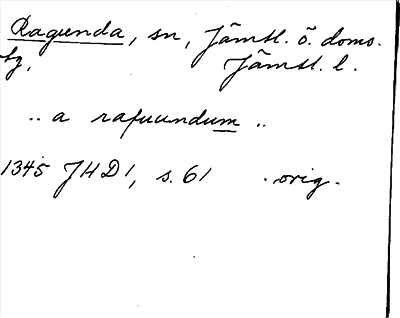 Ragunda, sn, Jämtl. ö. doms.
tg. Jämtl. l.
.. a rafuundum ..
1345 JHD1, s. 61 . orig.